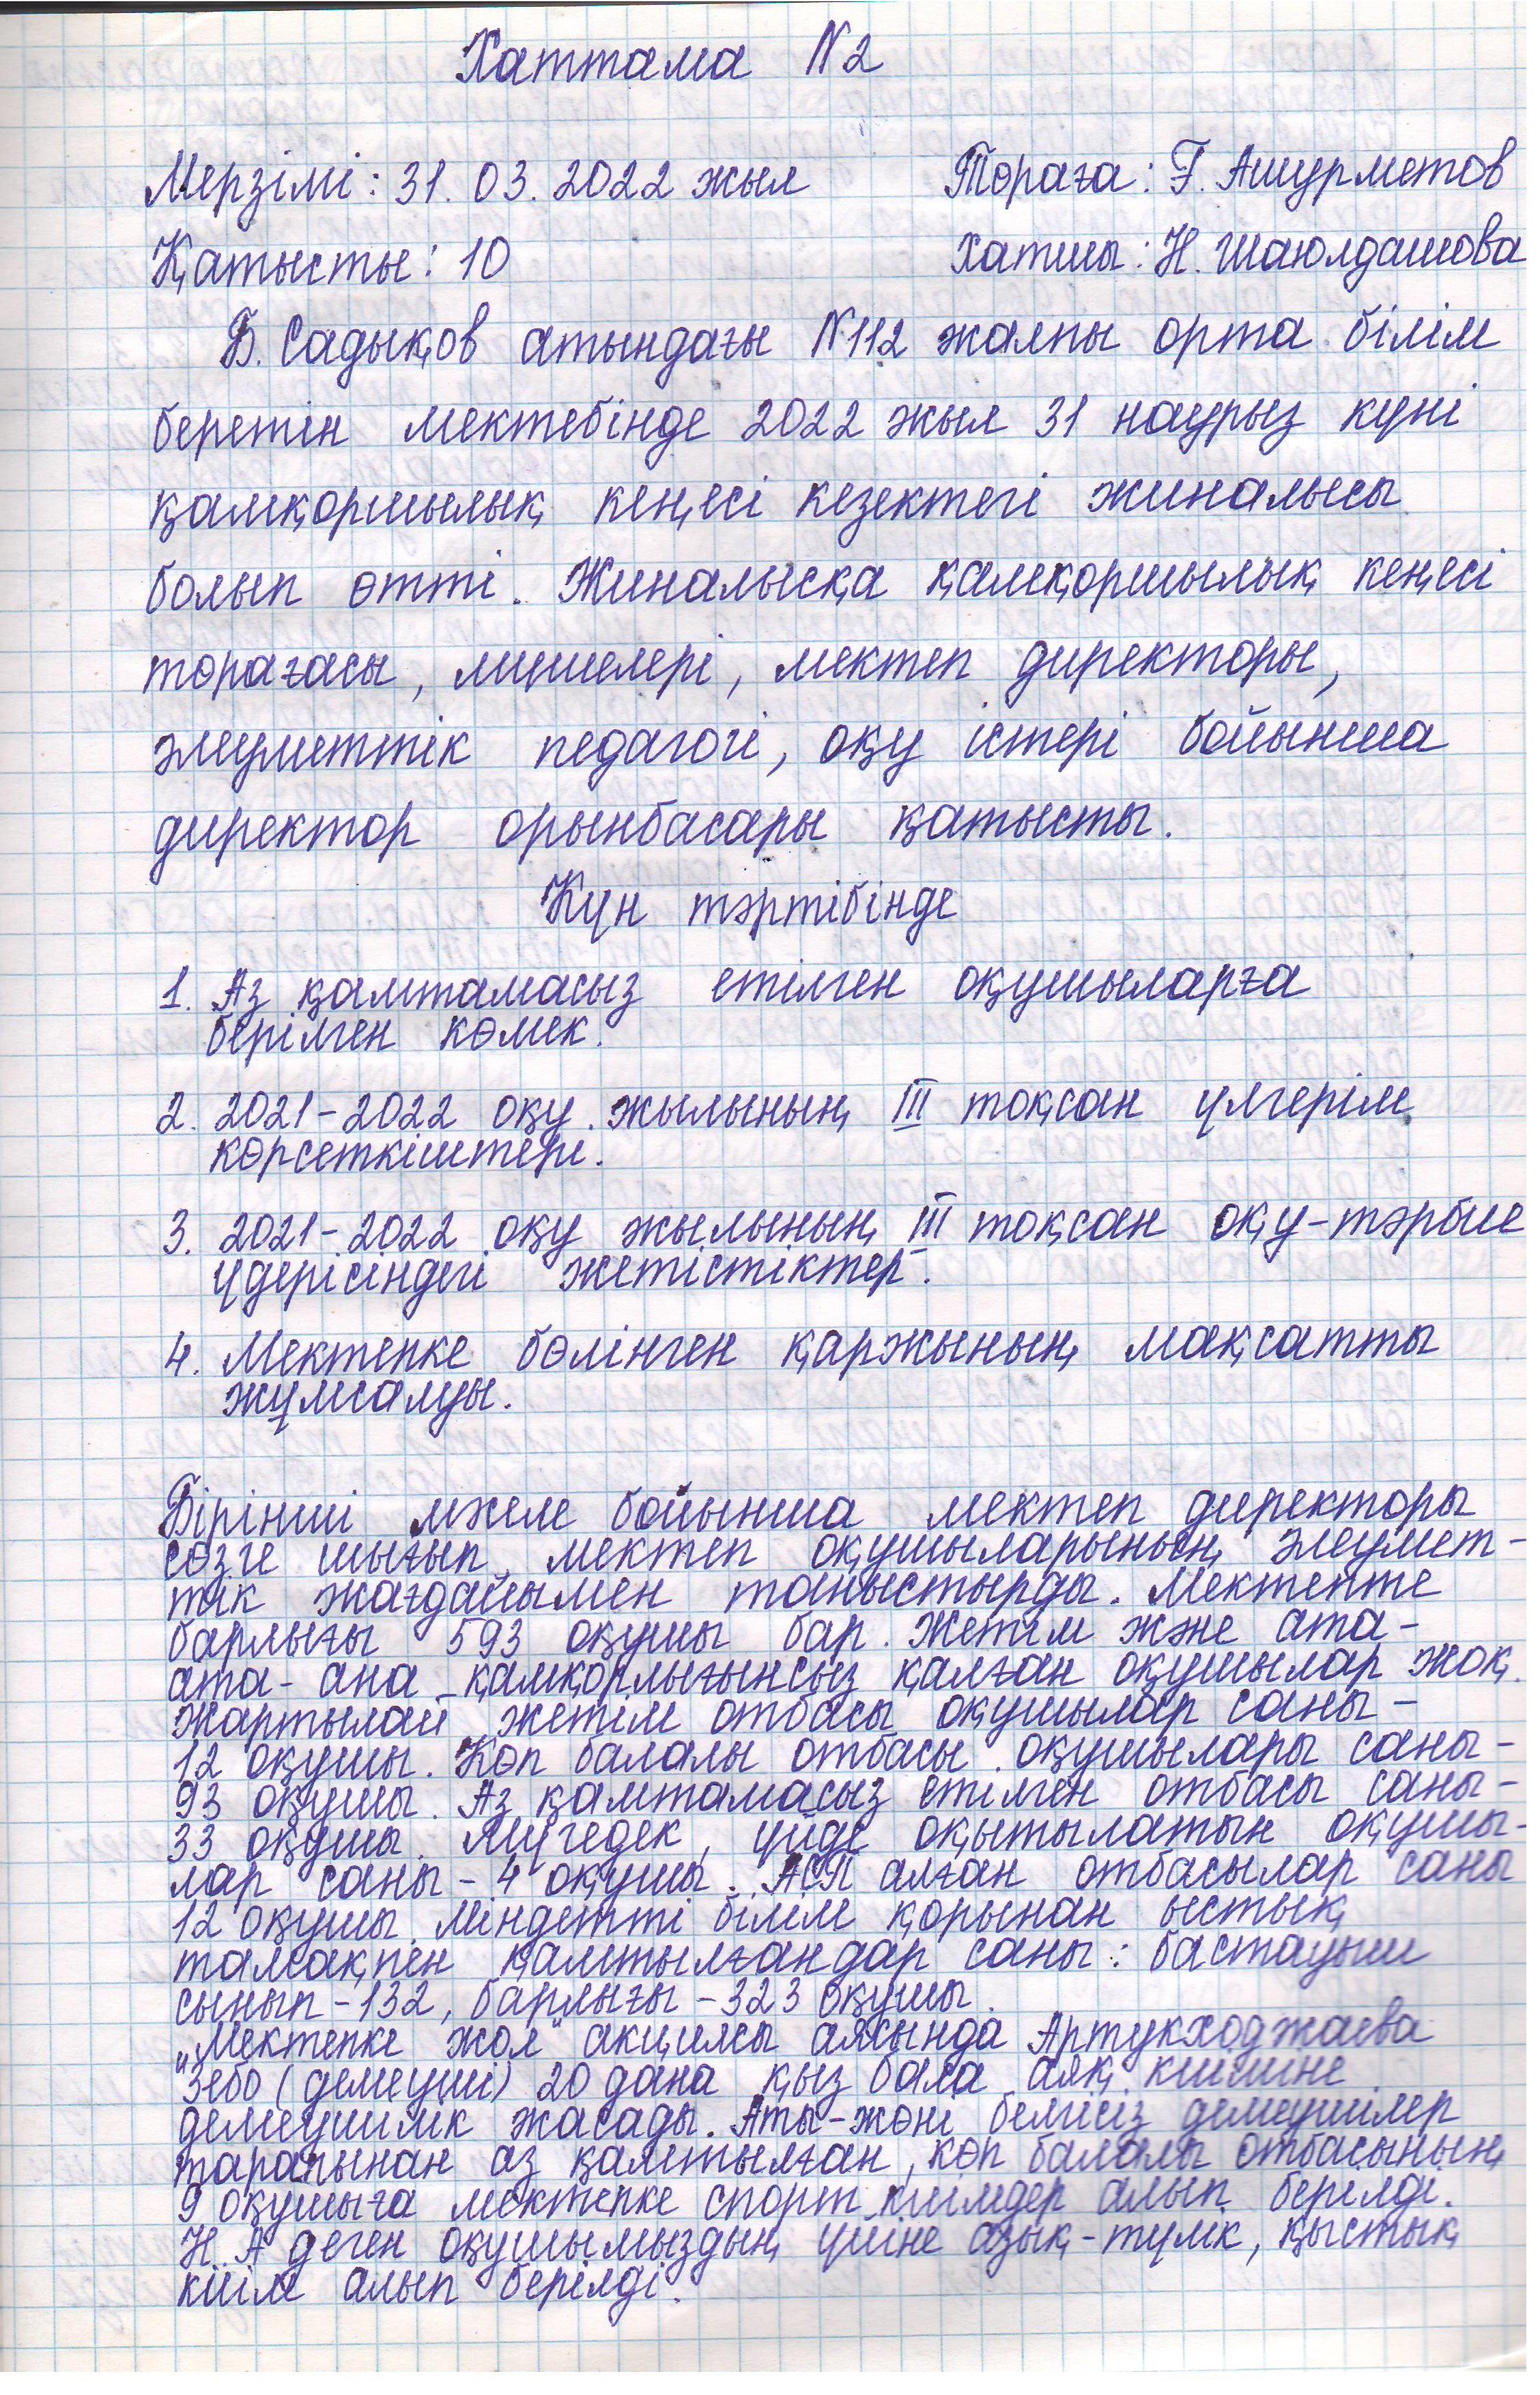 Хаттама N2
Мерзімі: 31.03.2022 жыл Төраға: Ғ. Ашурметов
Қатысты: 10 Хатшы: Н. Шаюлдашова
Б. Садықов атындағы N112 жалпы орта білім
беретін мектебінде 2022 жыл 31 наурыз күні
қамқоршылық кеңесі кезектегі жиналысы
болып өтті. Жиналысқа қамқоршылық кеңесі
төрағасы, мүшелері, мектеп директоры,
әлеуметтік педагогі, оқу істері бойынша
директор орынбасары қатысты.
Күн тәртібінде
1. Аз қамтамасыз етілген оқушыларға
берілген көмек.
2. 2021-2022 оқу жылының III тоқсан үлгерім
көрсеткіштері.
3. 2021-2022 оқу жылының III тоқсан оқу-тәрбие
үдерісіндегі жетістіктер.
4. Мектепке бөлінген қаржының мақсатты
жұмсалуы.
Бірінші мәселе бойынша мектеп директоры
сөзге шығып мектеп оқушыларының әлеумет-
тік жағдайымен таныстырды. Мектепте
барлығы 593 оқушы бар. Жетім және ата-
ата-ана қамқорлығынсыз қалған оқушылар жоқ.
Жартылай жетім отбасы оқушылар саны -
12 оқушы. Көп балалы отбасы оқушылары саны -
93 оқушы. Аз қамтамасыз етілген отбасы саны -
33 оқушы. Мүгедек, үйде оқытылатын оқушы-
лар саны - 4 оқушы. АСП алған отбасылар саны
12 оқушы. Міндетті білім қорынан ыстық
тамақпен қамтылғандар саны: бастауыш
сынып - 132, барлығы - 323 оқушы.
„Мектепке жол" акциясы аясында Артукходжаева
Зебо (демеуші) 20 дана қыз бала аяқ киіміне
демеушілік жасады. Аты-жөні белгісіз демеушілер
тарапынан аз қамтылған, көп балалы отбасының
9 оқушыға мектепке спорт киімдер алып берілді.
Н. А деген оқушымыздың үйіне азық-түлік, қыстық
киім алып берілді.